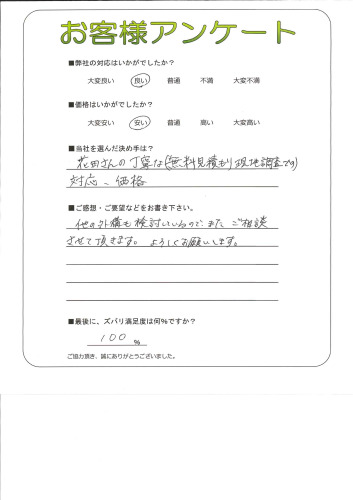 お客様アンケート
■弊社の対応はいかがでしたか？
大変良い 良い 普通 不満 大変不満
■価格はいかがでしたか？
大変安い 安い 普通 高い 大変高い
■当社を選んだ決め手は？
花田さんの丁寧な(無料見積もり現地調査での)
対応、価格
■ご感想・ご要望などをお書き下さい。
他の外構も検討しているので、また ご相談
させて頂きます。よろしくお願いします。
■最後に、ズバリ満足度は何%ですか？
100 %
ご協力頂き、誠にありがとうございました。